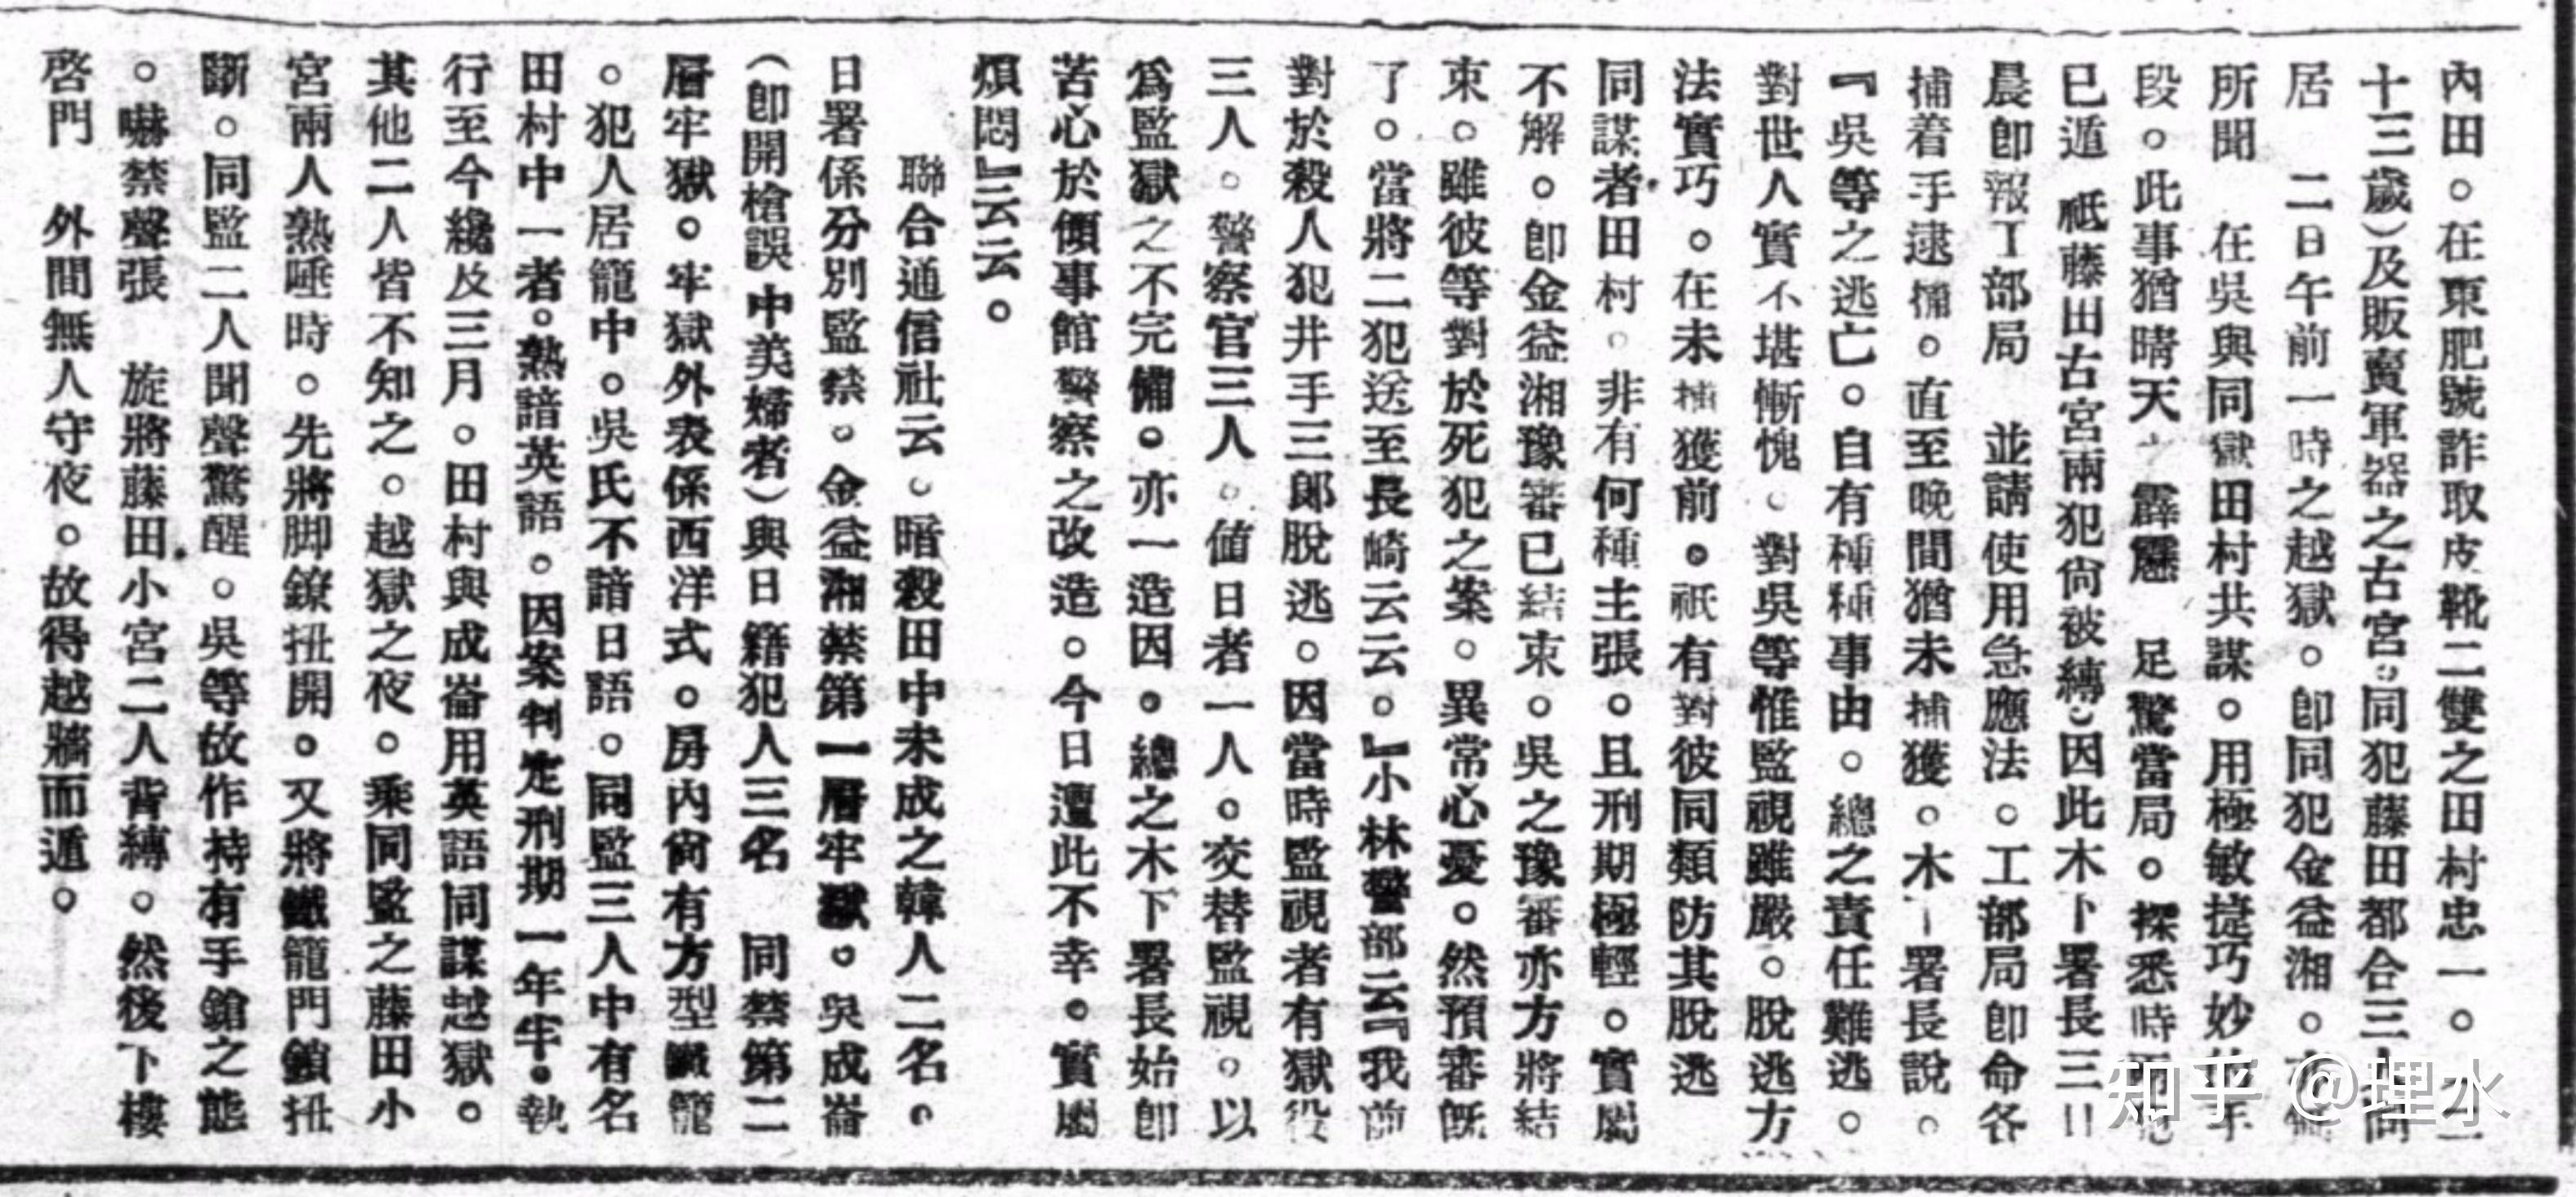 內田。在東肥號詐取皮靴二雙之田村忠一。
十三歲）及販賣軍器之古宮。同犯藤田都合三人同
居　二日午前一時之越獄。卽同犯金益湘。亦無
所聞　在吳與同獄田村共謀。用極敏捷巧妙的手
段。此事猶晴天之霹靂　足驚當局。探悉時兩犯
已遁　祇藤田古宮兩犯尙被縛。因此木下署長三日
晨卽報工部局　並請使用急應法。工部局卽命各
捕着手逮捕。直至晚間猶未捕獲。木下署長說。
『吳等之逃亡。自有種種事由。總之責任難逃。
對世人實不堪慚愧。對吳等惟監視雖嚴。脫逃方
法實巧。在未捕獲前。祇有對彼同類防其脫逃
同謀者田村。非有何種主張。且刑期極輕。實屬
不解。卽金益湘豫審已結束。吳之豫審亦方將結
束。雖彼等對於死犯之案。異常心憂。然預審旣
了。當將二犯送至長崎云云。』小林警部云『我前
對於殺人犯井手三郞脫逃。因當時監視者有獄役
三人。警察官三人。値日者一人。交替監視。以
爲監獄之不完備。亦一造因。總之木下署長始卽
苦心於領事館警察之改造。今日遭此不幸。實屬
煩悶』云云。
聯合通信社云。暗殺田中未成之韓人二名。
日署係分別監禁。金益湘禁第一層牢獄。吳成崙
（卽開槍誤中美婦者）與日籍犯人三名　同禁第二
層牢獄。牢獄外表係西洋式。房內尙有方型鐵籠
。犯人居籠中。吳氏不諳日語。同監三人中有名
田村中一者。熟諳英語。因案判定刑期一年牢。執
行至今纔及三月。田村與成崙用英語同謀越獄。
其他二人皆不知之。越獄之夜。乘同監之藤田小
宮兩人熟睡時。先將脚鐐扭開。又將鐵籠門鎖扭
斷。同監二人聞聲驚醒。吳等故作持有手鎗之態
。嚇禁聲張　旋將藤田小宮二人背縛。然後下樓
啓門　外間無人守夜。故得越牆而遁。
知乎 @理水